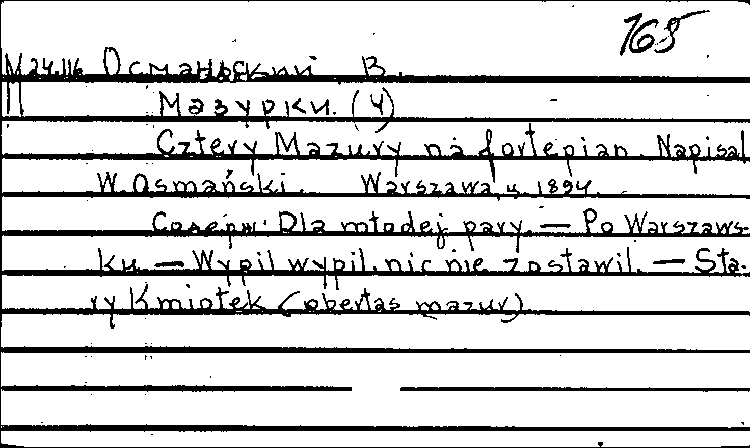 168
М 24.116 Османьский В.
Мазурки. (4)
Cztery Mazury na fortepian. Napisal
W. Osmański. Warszawa, ц. 1894.
Содерж. Dla młodej pary. — Po Warszaws-
ku. — Wypil wypil, nic nie zostawil. — Sta-
ry Kmiotek (obertas mazur)